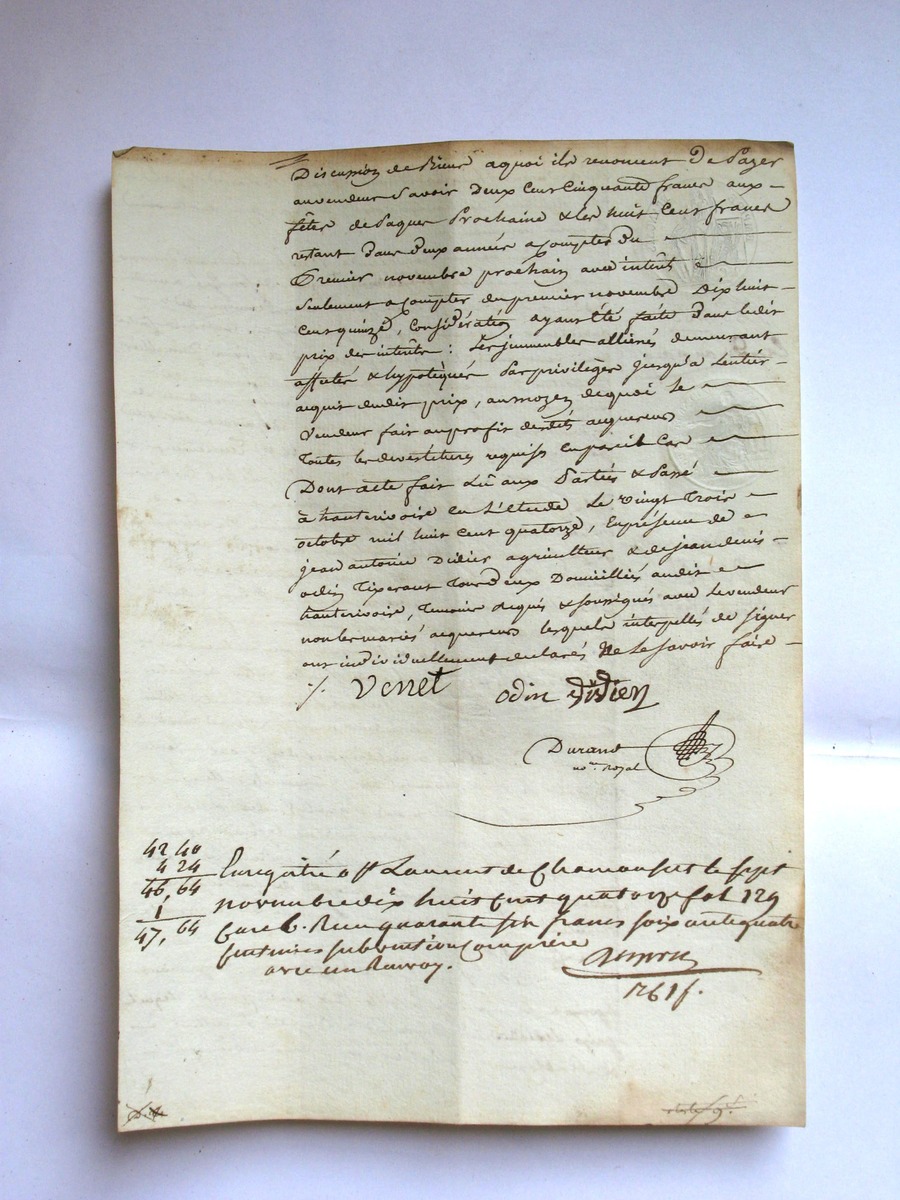 Discussion de Biens aquoi ils renoncent De Payer
au vendeur Savoir Deux Cent Cinquante francs aux
fêtes de Paques Prochaine & les huit Cent francs
restant dans deux années a Compter du
Premier novembre prochain avec intérêts
Seulement a Compter du premier novembre Dix huit
Cent quinze, Considération ayant été faite dans le dit
prix des intérêts : Les immeubles alliénés demeurant
affectés & hypotéqués Par privilège jusqu'a Lentier
acquit dudit prix, au moyen dequoi Le
Vendeur fait au profit desdits acquereurs
Toutes les devestitures requises En pareil Cas
Dont acte fait Lû aux Parties & Passé
à hauterivoire En L'étude Le vingt Trois
octobre mil huit Cent quatorze, En présence de
jean antoine Didier agriculteur & de jean denis
odin Tixerant Tous deux Domiciliés audit
hauterivoire, Temoins requis & soussignés avec Le vendeur
non les mariés acquereurs lesquels interpellés de signer
ont individuellement declarés Ne Le Savoir faire
Verret odin didier
Durand
no.re Royal
42 40
4 24
46, 64
1
47, 64
Enregistré a St Laurent de Chamousset le sept
novembre dix huit Cent quatorze fol 129
Case 6. Reçu quarante six francs soixante quatre
Centimes subvention Comprise
avec un Renvoy.
1261 f.